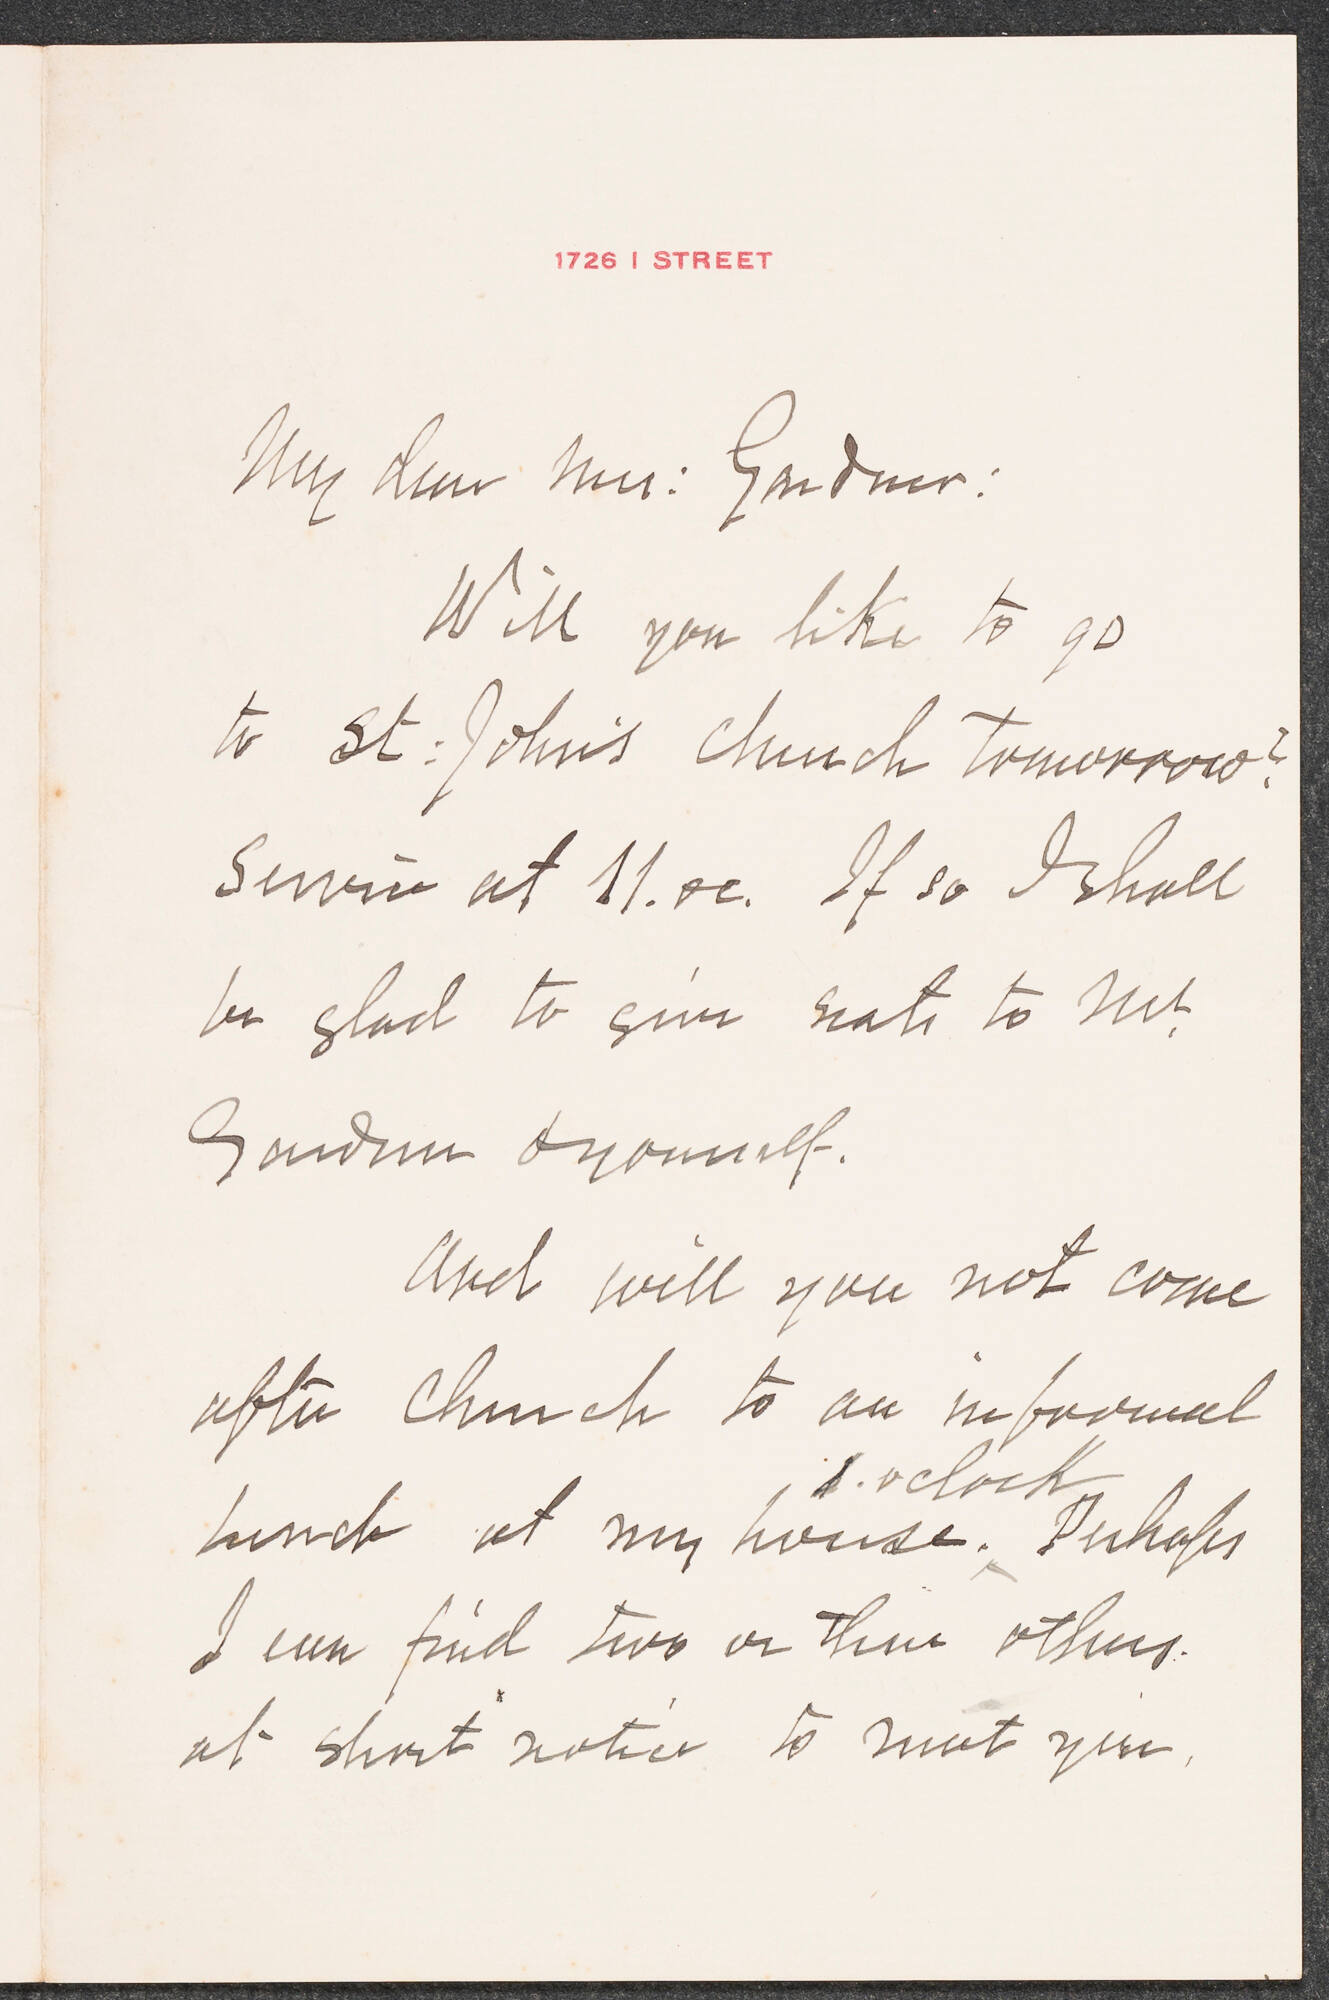 1726 I STREET
My dear Mrs: Gardner:
Will you like to go
to St: John's church tomorrow?
Service at 11. oc. If so I shall
be glad to give seats to Mr.
Gardner & yourself.
And will you not come
after church to an informal
1. oclock
lunch at my house. Perhaps
I can find two or three others.
at short notice to meet you.